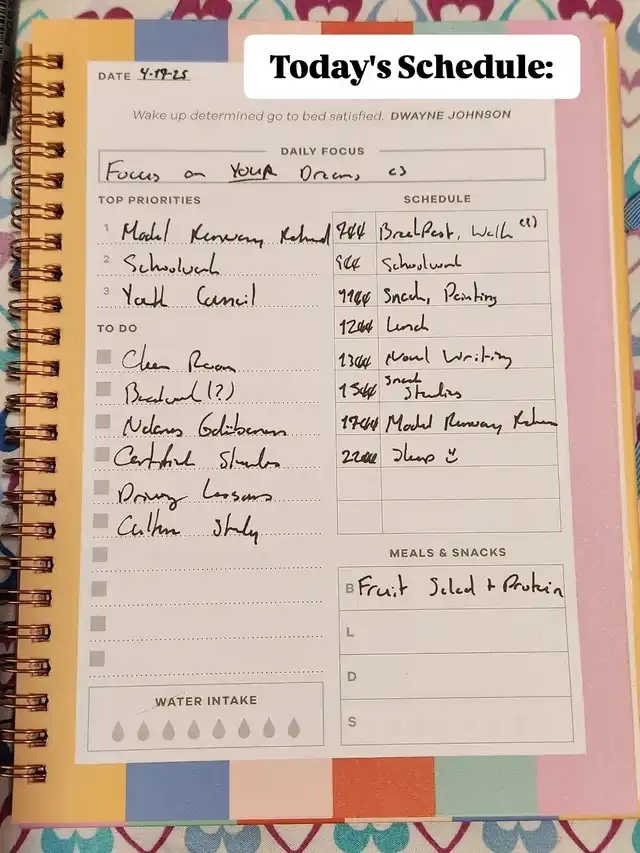 Today's Schedule:
DATE 4-19-25
Wake up determined go to bed satisfied. DWAYNE JOHNSON
DAILY FOCUS
Focus on YOUR Dreams <3
TOP PRIORITIES
1 Model Runway Rehearsal
2 Schoolwork
3 Youth Council
TO DO
Clean Room
Bookwork (?)
Certified Studies
Driving Lessons
Culture Study
WATER INTAKE
SCHEDULE
Breakfast, Walk
Schoolwork
1100 Snack, Painting
1200 Lunch
1300 Novel Writing
1500 Snack
Studies
1700 Model Runway
2200 Sleep
MEALS & SNACKS
B Fruit Salad + Protein
L
D
S